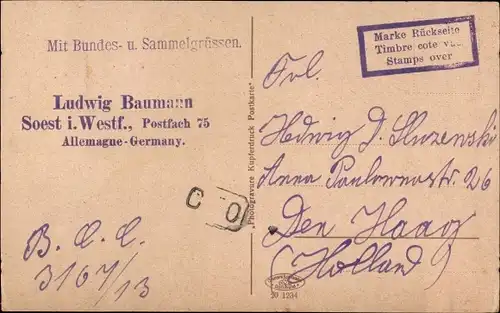 Mit Bundes- u. Sammelgrüssen.
Ludwig Baumann
Soest i. Westf., Postfach 75
Allemagne-Germany.
C O
B. C. C.
3167/13
"Photogravure Kupferdruck Postkarte"
Marke Rückseite
Timbre cote vue
Stamps over
Frl.
Hedwig D. Sluzewski
Anna Paulownastr. 26
Den Haag
(Holland)
20 1234